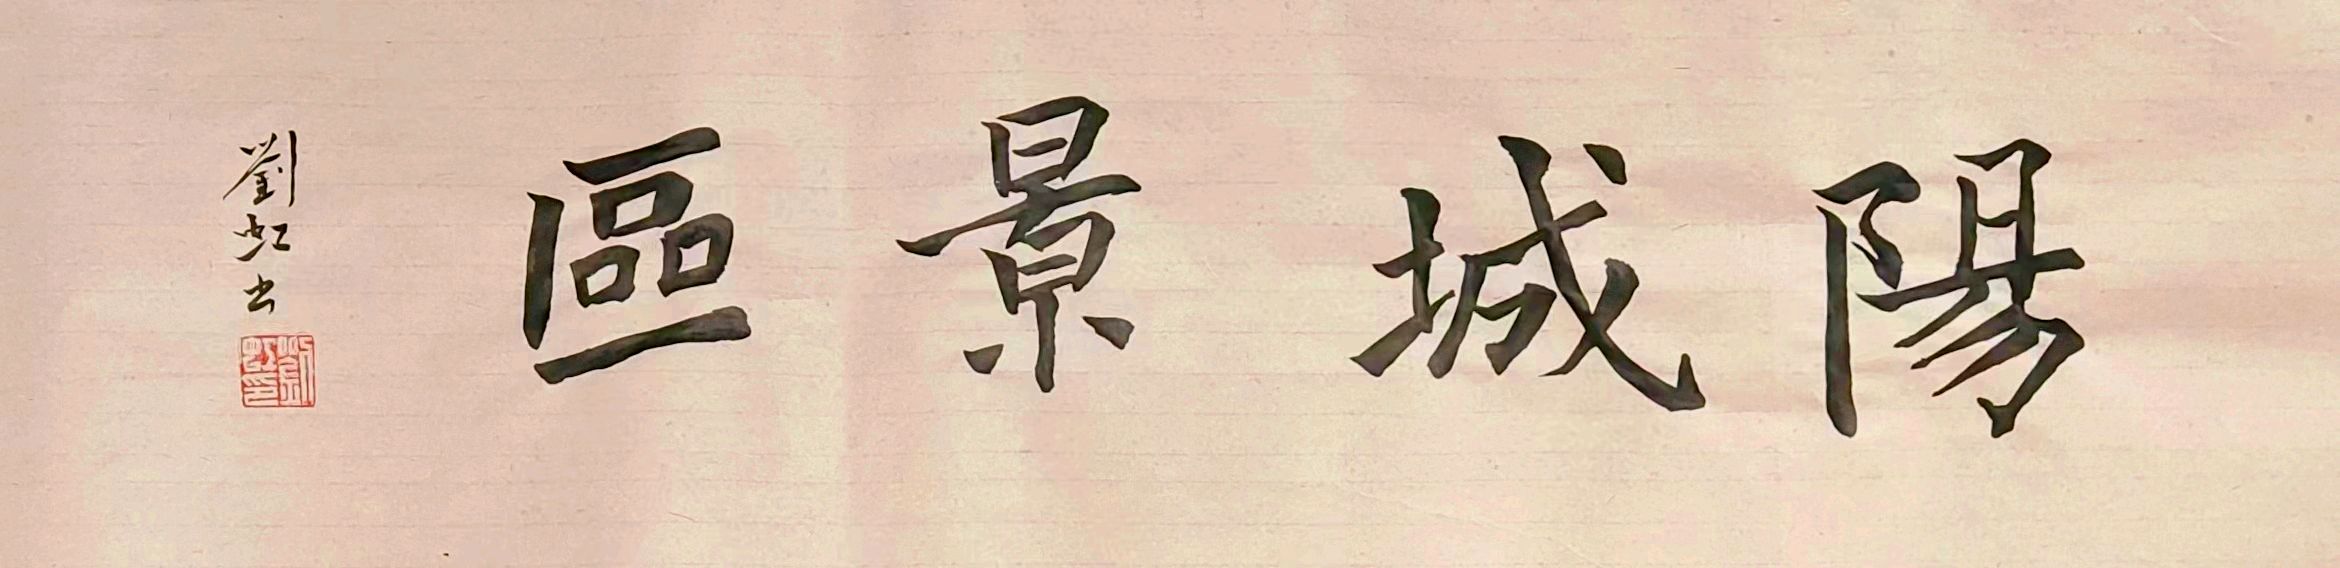 陽城景區
劉虹书
劉虹印